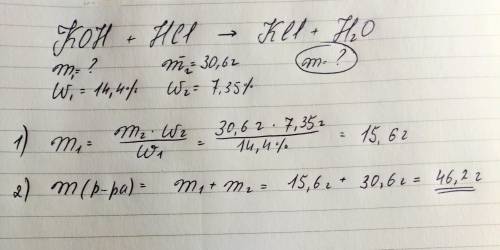 KOH + HCl → KCl + H₂O
m₁=? m₂=30,6г m=?
W₁=14,4% W₂=7,35%
1) m₁ = m₂·W₂ / W₁ = 30,6г · 7,35г / 14,4% = 15,6г
2) m(р-ра) = m₁ + m₂ = 15,6г + 30,6г = 46,2г